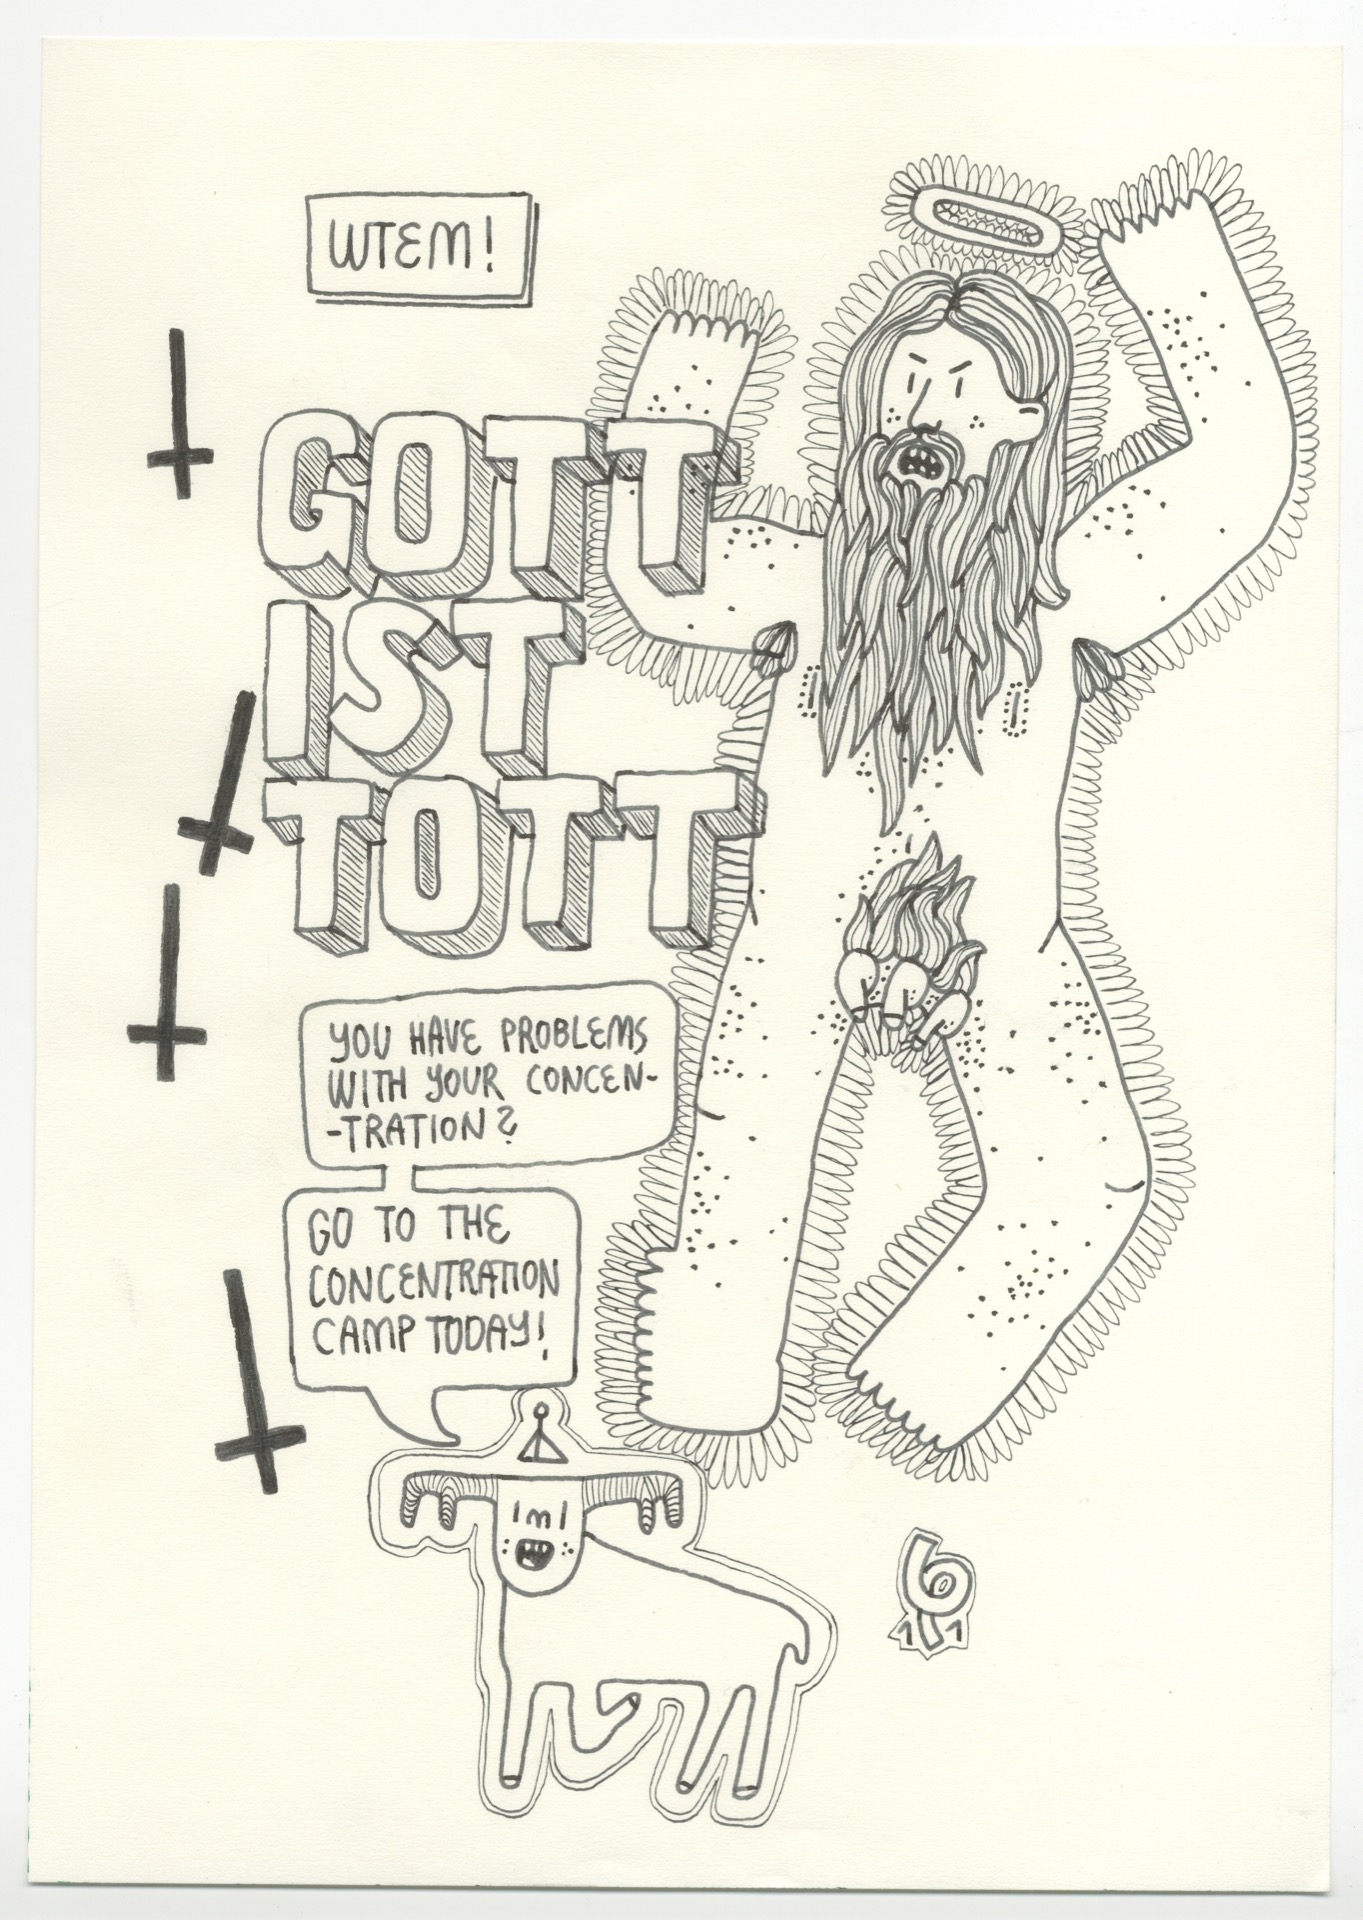 WTEM!
GOTT
IST
TOTT
YOU HAVE PROBLEMS
WITH YOUR CONCEN-
-TRATION?
GO TO THE
CONCENTRATION
CAMP TODAY!